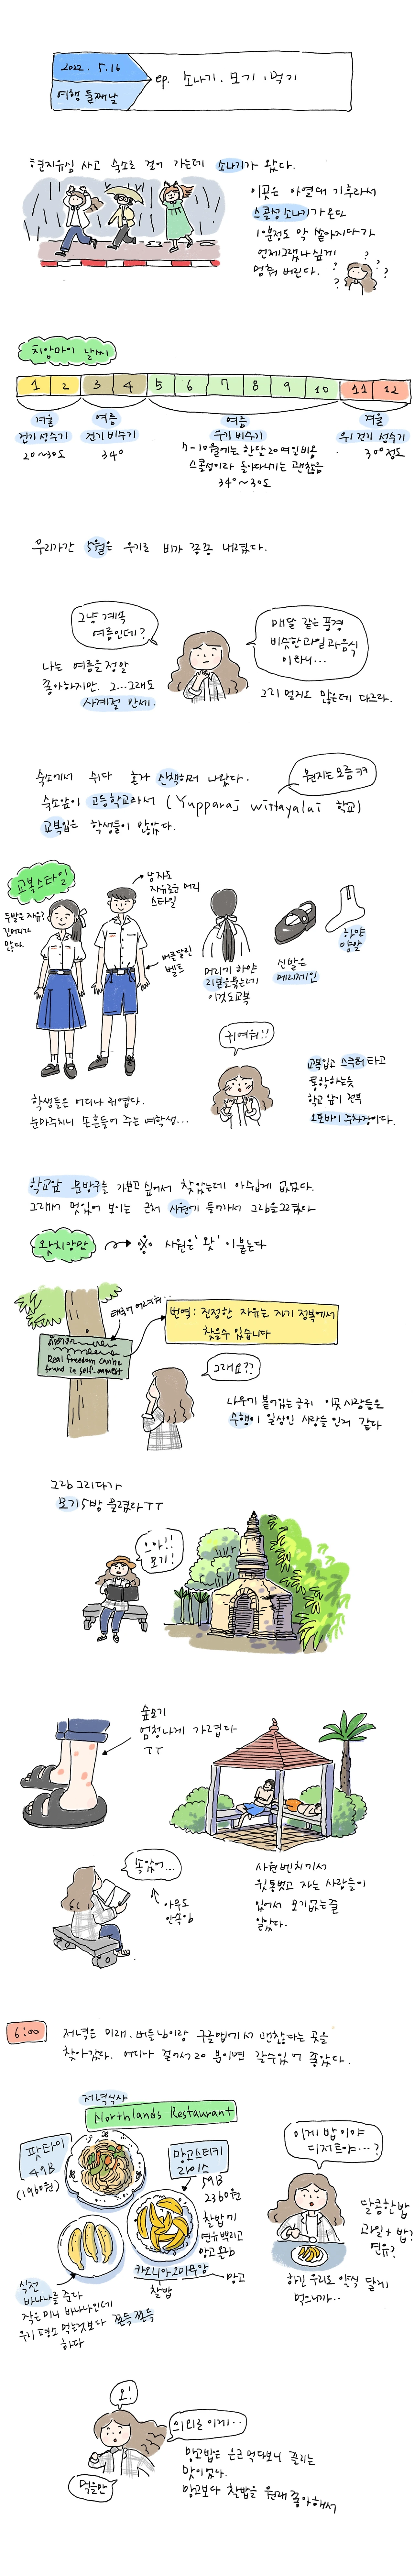 2022. 5.16
여행 둘째날
ep. 소나기. 모기. 먹기
현지유심 사고 숙소로 걸어 가는데 소나기가 왔다.
이곳은 아열대 기후라서
스콜성 소나기가 온다
1분정도 막 쏟아지다가
언제그랬냐 싶게
멈춰 버린다.
? ? ? ? ?
치앙마이 날씨
1 2 3 4 5 6 7 8 9 10 11 12
겨울
건기 성수기
20~30도
여름
건기 비수기
34°
여름
우기 비수기
7-10월에는 한달 20여일 비옴
스콜성이라 돌아다니기는 괜찮음
34°~30도
겨울
건기 성수기
30°정도
우리가간 5월은 우기로 비가 종종 내렸다.
그냥 계속
여름인데?
나는 여름을 정말
좋아하지만. 그...그래도
사계절 만세.
매달 같은 풍경
비슷한 과일과 음식
이라니...
그리 멀지도 않은데 다르다.
숙소에서 쉬다 혼자 산책하러 나왔다.
뭔지는모름ㅋㅋ
숙소앞이 고등학교라서 (Yupparaj wittayalai 학교)
교복입은 학생들이 많았다.
교복스타일
두발은 자유?
긴머리가
많다.
남자도
자유로운 머리
스타일
버클달린
벨트
머리가 하얀
리본으로 묶는데
이것도교복
신발은
메리제인
하얀
양말
귀여워!!
학생들은 어디나 귀엽다.
눈마주치니 손흔들어 주는 여학생...
교복입고 스쿠터 타고
통학하는듯
학교 앞이 전부
오토바이 주차장이다.
학교앞 문방구를 가보고 싶어서 찾았는데 아쉽게 없었다.
그래서 멋있어 보이는 근처 사원에 들어가서 그림을그렸다
왓치앙만
※ 사원은 '왓' 이붙는다
태국어 어려워..
Real freedom can be
found in self-conquest
번역: 진정한 자유는 자기 정복에서
찾을수 있습니다
그래요??
나무에 붙어있는글귀 이곳 사람들은
수행이 일상인 사람들 인거 같다
그림 그리다가
모기 5방 물렸다 ㅜㅜ
으아!!
모기!
숲모기
엄청나게 가렵다
ㅜㅜ
속았어...
아무도
안속임
사원벤치에서
윗통벗고 자는 사람들이
있어서 모기 없는줄
알았다.
6:00
저녁은 미래, 버들님이랑 구글맵에서 괜찮다는 곳을
찾아갔다. 어디나 걸어서 20분이면 갈수있어 좋았다.
저녁식사
Northlands Restaurant
팟타이
49B
(1960원)
망고스티키
라이스
59B
2360원
찰밥에
연유뿌리고
망고 혼합
카오니아오마무앙
찰밥
망고
식전
바나나를 준다
작은 미니 바나나인데
우리 평소 먹는것보다 쫀득쫀득
하다
이게 밥이야
디저트야...?
달콤한밥
과일+밥?
연유?
하긴 우리도 약식 달게
먹으니까..
오!
의외로 이게..
먹을만
망고밥은 은근 먹다보니 끌리는
맛이었다.
망고보다 찰밥을 원래 좋아해서